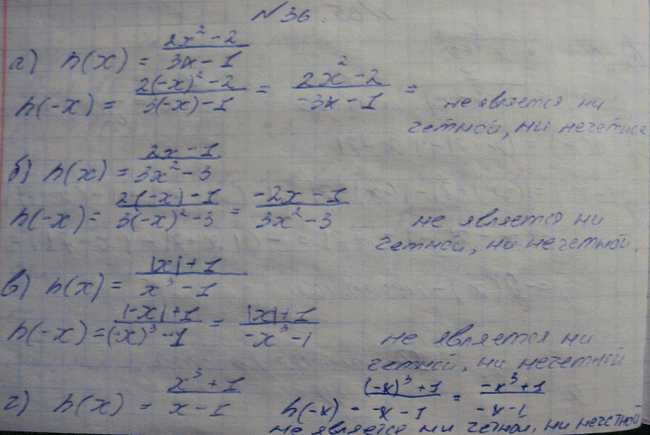 №36
а) h(x) = (2x² - 2)/(3x - 1)
h(-x) = (2(-x)² - 2)/(3(-x) - 1) = (2x² - 2)/(-3x - 1) = не является ни
четной, ни нечетной
б) h(x) = (2x - 1)/(3x² - 3)
h(-x) = (2(-x) - 1)/(3(-x)² - 3) = (-2x - 1)/(3x² - 3) не является ни
четной, ни нечетной.
в) h(x) = (|x| + 1)/(x³ - 1)
h(-x) = (|-x| + 1)/((-x)³ - 1) = (|x| + 1)/(-x³ - 1) не является ни
четной, ни нечетной
г) h(x) = (x³ + 1)/(x - 1) h(-x) = ((-x)³ + 1)/(-x - 1) = (-x³ + 1)/(-x - 1)
не является ни четной, ни нечетной